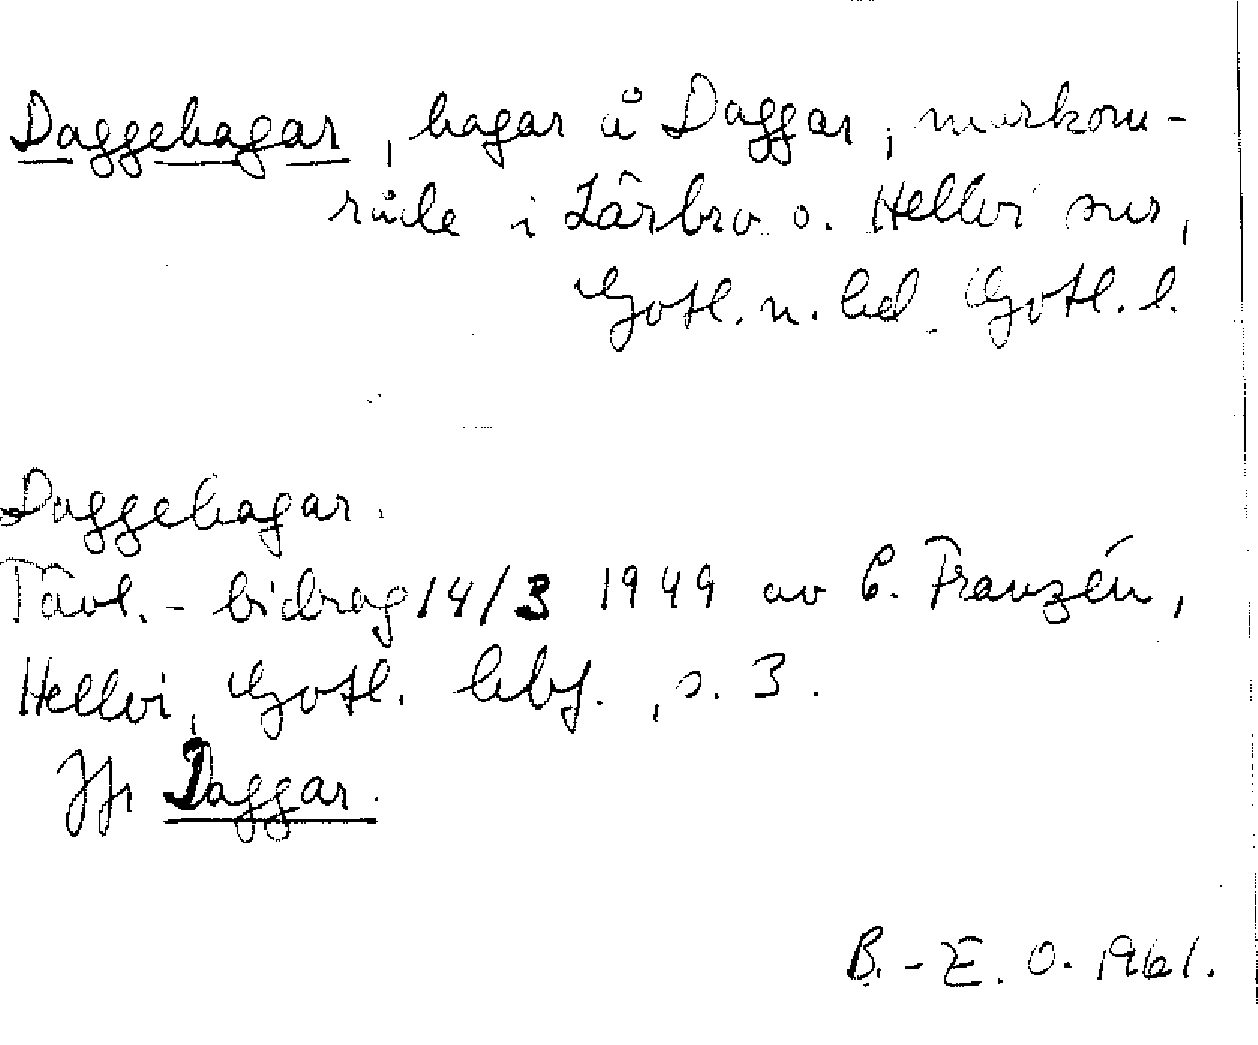 Daggehagar, hagar å Daggar, markom-
råde i Lärbro o. Hellvi snr,
Gotl. n. hd. Gotl. l.
Daggehagar.
Tävl.-bidrag 14/3 1949 av C. Franzén,
Hellvi, Gotl. hbf., s. 3.
Jfr Daggar.
B.-E. O. 1961.